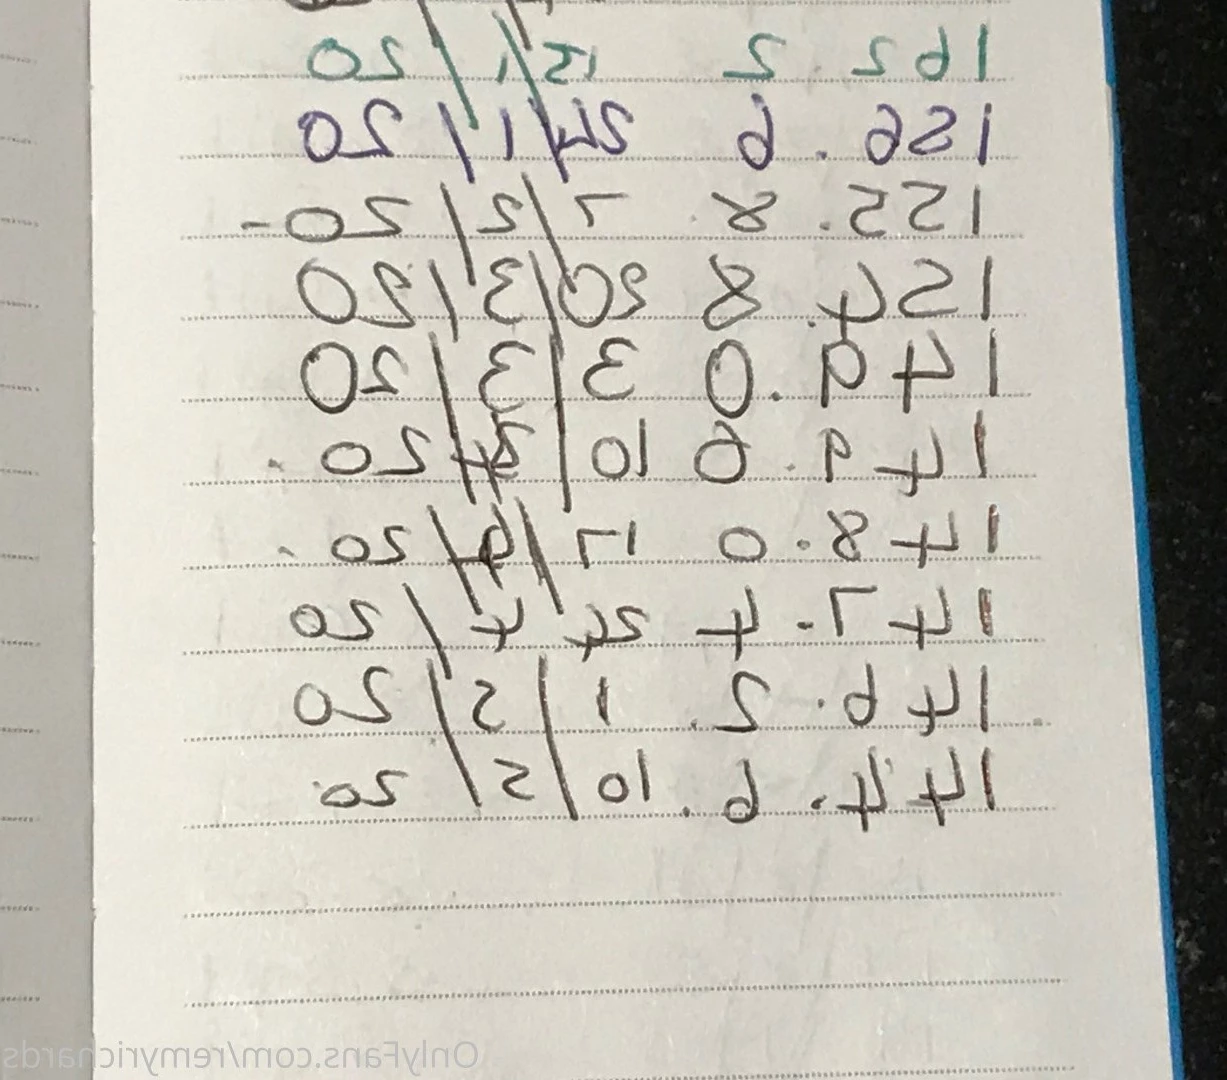 162.2 12/1/20
156.6 24/1/20
155.8 7/2/20-
154.8 20/3/20
149.0 3/3/20
149.6 10/4/20.
148.0 17/4/20.
147.4 24/4/20
146.2. 1/5/20
144.6. 10/5/20.
OnlyFans.com/remyrichards